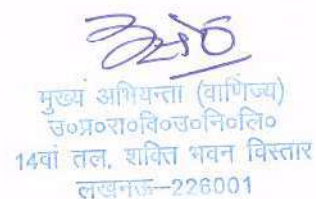 मुख्य अभियन्ता (वाणिज्य)
उ०प्र०रा०वि०उ०नि०लि०
14वां तल, शक्ति भवन विस्तार
लखनऊ-226001